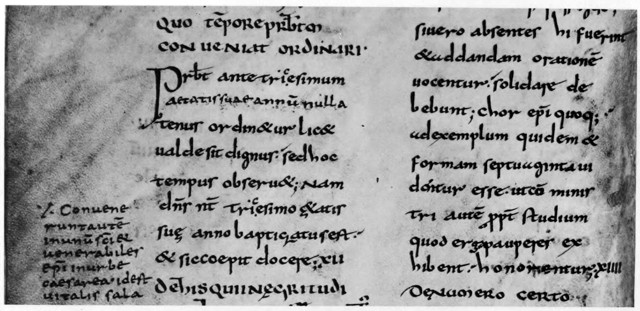 QUO TĒPORE PRBTM
CONVENIAT ORDINARI·
Prbt ante tricesimum
aetatis suae annū nulla
tenus ordin&ur lic&
ualde sit dignus· sed hoc
tempus obseru&; Nam
dns nt tricesimo &atis
suę anno baptizatus est·
& sic coepit docere; XII
DE HIS QUI IN ĘGRITUDI
·/. Conuene
runt autē
in unū sci &
uenerabiles
epi in urbe
caesarea id est
uitalis sala
siuero absentes hi fuerint
& ad dandam orationē
uocentur· solidare de
bebunt; chor epi quoq;
ad exemplum quidem &
formam septuaginta ui
dentur esse· ut cō minis
tri autē ppt studium
quod erga pauperes ex
hibent· honorentur; XIIII
DE NUMERO CERTO